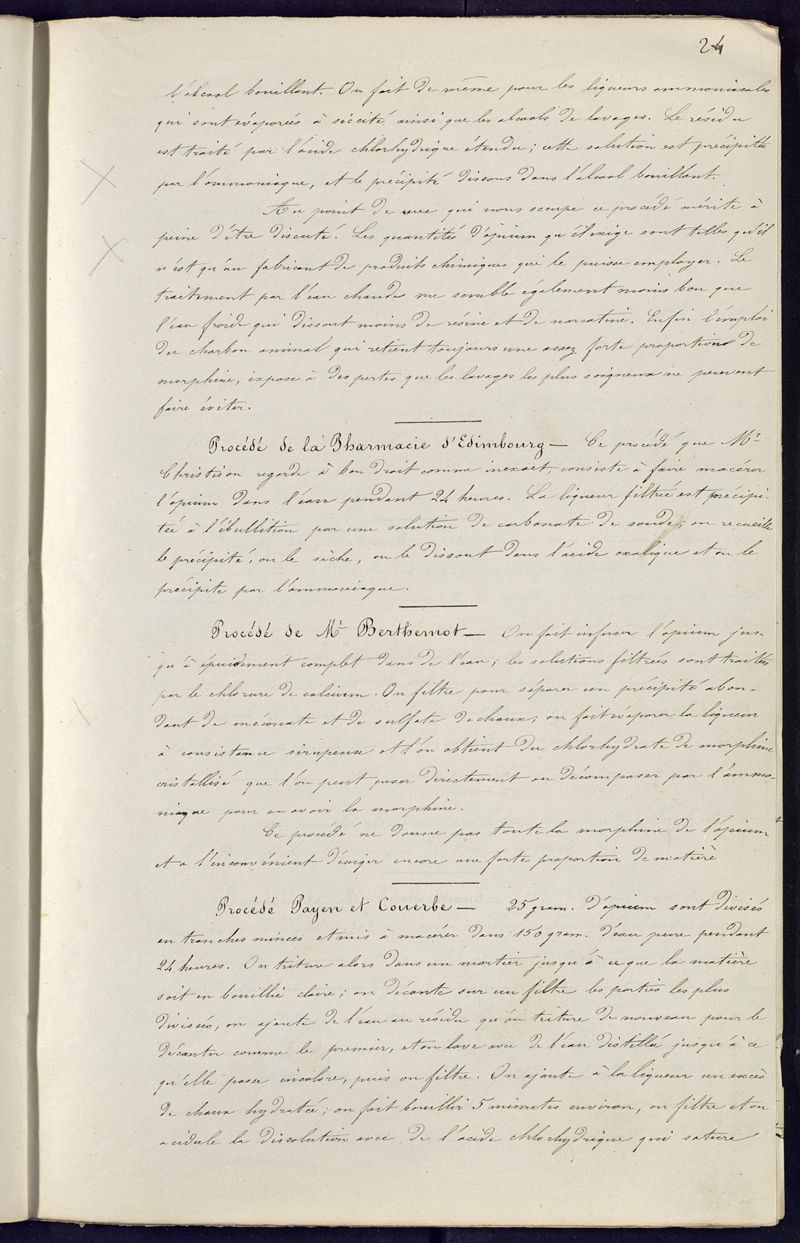 24
l'alcool bouillant. On fait de même pour les liqueurs ammoniacales
qui sont evaporées à siccité ainsi que les alcools de lavages. Le résidu
est traité par l'acide chlorhydrique étendu; cette solution est précipitée
par l'ammoniaque, et le précipité dissous dans l'alcool bouillant.
Au point de vue qui nous occupe ce procédé mérite à
peine d'être discuté. Les quantités d'opium qu'il exige sont telles qu'il
n'est qu'un fabricant de produits chimiques qui le puisse employer. Le
traitement par l'eau chaude me semble également moins bon que
l'eau froide qui dissout moins de résine et de narcotine. Enfin l'emploi
du charbon animal qui retient toujours une assez forte proportion de
morphine, expose à des pertes que les lavages les plus soigneux ne peuvent
faire éviter.
Procédé de la Pharmacie d'Edimbourg — Ce procédé que Mr
Christison regarde à bon droit comme inexact, consiste à faire macérer
l'opium dans l'eau pendant 24 heures. La liqueur filtrée est précipi-
tée à l'ébullition par une solution de carbonate de soude; on recueille
le précipité, on le sèche, on le dissout dans l'acide oxalique et on le
précipite par l'ammoniaque.
Procédé de Mr Berthemot — On fait infuser l'opium jus-
qu'à épuisement complet dans de l'eau; les solutions filtrées sont traitées
par le chlorure de calcium. On filtre pour séparer un précipité abon-
dant de méconate et de sulfate de chaux; on fait évaporer la liqueur
à consistance sirupeuse et l'on obtient du chlorhydrate de morphine
cristallisé que l'on peut peser directement ou décomposer par l'ammo-
niaque pour en avoir la morphine.
Ce procédé ne donne pas toute la morphine de l'opium
et a l'inconvénient d'exiger encore une forte proportion de matière
Procédé Payen et Couerbe — 25 gram. d'opium sont divisés
en tranches minces et mis à macérer dans 150 gram. d'eau pure pendant
24 heures. On triture alors dans un mortier jusqu'à ce que la matière
soit en bouillie claire; on décante sur un filtre les parties les plus
divisées, on ajoute de l'eau au résidu qu'on triture de nouveau pour le
décanter comme le premier, et on lave avec de l'eau distillée jusqu'à ce
qu'elle passe incolore, puis on filtre. On ajoute à la liqueur un excès
de chaux hydratée; on fait bouillir 5 minutes environ, on filtre et on
acidule la dissolution avec de l'acide chlorhydrique qui sature